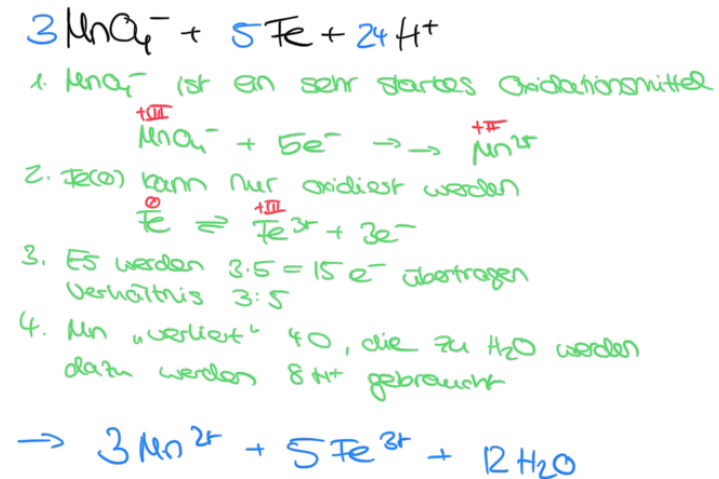 3 MnO₄⁻ + 5 Fe + 24 H⁺
1. MnO₄⁻ ist ein sehr starkes Oxidationsmittel
+VII +II
MnO₄⁻ + 5e⁻ →→ Mn²⁺
2. Fe(0) kann nur oxidiert werden
0 +III
Fe ⇌ Fe³⁺ + 3e⁻
3. Es werden 3·5 = 15 e⁻ übertragen
Verhältnis 3:5
4. Mn „verliert“ 4O, die zu H₂O werden
dazu werden 8 H⁺ gebraucht
→ 3 Mn²⁺ + 5 Fe³⁺ + 12 H₂O